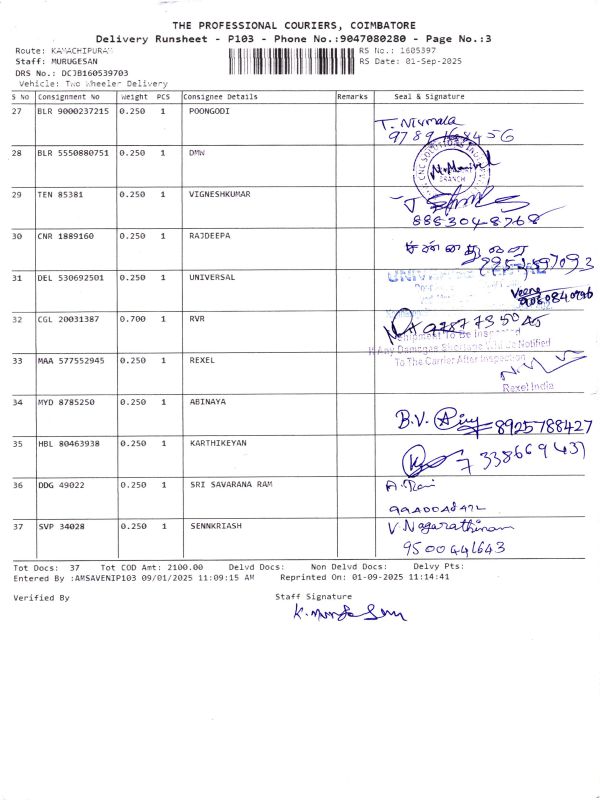 THE PROFESSIONAL COURIERS, COIMBATORE
Delivery Runsheet - P103 - Phone No.:9047080280 - Page No.:3
Route: KAMACHIPURAM
RS No.: 1605397
Staff: MURUGESAN
RS Date: 01-Sep-2025
DRS No.: DCJB160539703
Vehicle: Two Wheeler Delivery
S No Consignment No Weight PCS Consignee Details Remarks Seal & Signature
27 BLR 9000237215 0.250 1 POONGODI T. Nirmala
28 BLR 5550880751 0.250 1 DMW
BRANCH
29 TEN 85381 0.250 1 VIGNESHKUMAR
8883048768
30 CNR 1889160 0.250 1 RAJDEEPA
31 DEL 530692501 0.250 1 UNIVERSAL
32 CGL 20031387 0.700 1 RVR
To Be Inspected
If Any Damages Shortage Will be Notified
33 MAA 577552945 0.250 1 REXEL To The Carrier After Inspection
Rexel India
34 MYD 8785250 0.250 1 ABINAYA B.V. 8925788427
35 HBL 80463938 0.250 1 KARTHIKEYAN 7338669437
36 DDG 49022 0.250 1 SRI SAVARANA RAM
37 SVP 34028 0.250 1 SENNKRIASH V Nagarathinam
9500441643
Tot Docs: 37 Tot COD Amt: 2100.00 Delvd Docs: Non Delvd Docs: Delvy Pts:
Entered By :AMSAVENIP103 09/01/2025 11:09:15 AM Reprinted On: 01-09-2025 11:14:41
Verified By Staff Signature